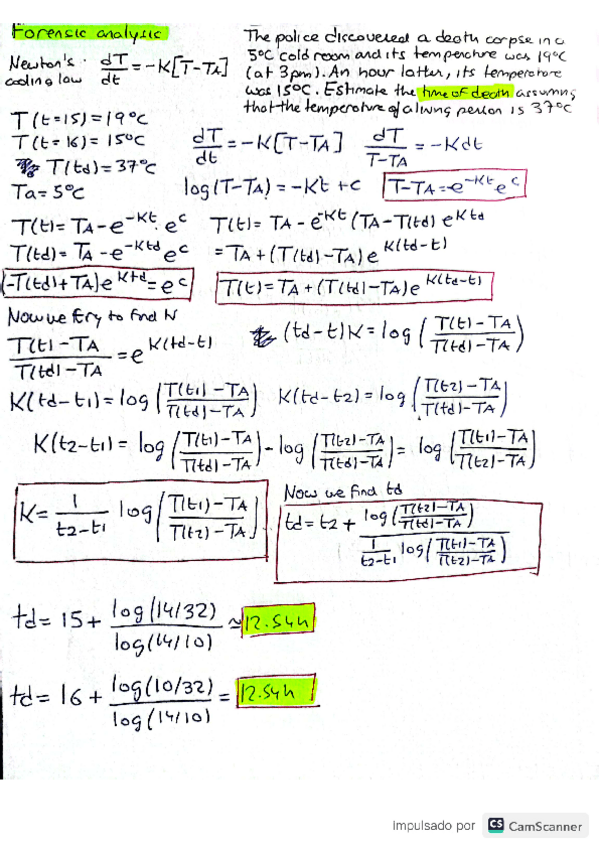 Forensic analysis
Newton's cooling law dT/dt = -K[T-TA]
The police discovered a death corpse in a
5ºC cold room and its temperature was 19ºC
(at 3pm). An hour latter, its temperature
was 15ºC. Estimate the time of death assuming
that the temperature of a living person is 37ºC
T(t=15)=19ºC
T(t=16)=15ºC
T(td)=37ºC
Ta=5ºC
dT/dt = -K[T-TA] dT/T-TA = -Kdt
log(T-TA) = -Kt + c T-TA = e^-Kt e^c
T(t) = TA - e^-Kt · e^c
T(td) = TA - e^-Ktd e^c
(-T(td)+TA)e^Ktd = e^c
T(t) = TA - e^-Kt (TA-T(td)) e^Ktd
= TA + (T(td)-TA) e^K(td-t)
T(t) = TA + (T(td)-TA) e^K(td-t)
Now we try to find K
T(t)-TA / T(td)-TA = e^K(td-t)
(td-t)K = log(T(t)-TA / T(td)-TA)
K(td-t1) = log(T(t1)-TA / T(td)-TA) K(td-t2) = log(T(t2)-TA / T(td)-TA)
K(t2-t1) = log(T(t1)-TA / T(td)-TA) - log(T(t2)-TA / T(td)-TA) = log(T(t1)-TA / T(t2)-TA)
K = 1/t2-t1 log(T(t1)-TA / T(t2)-TA)
Now we find td
td = t2 + log(T(t2)-TA / T(td)-TA) / 1/t2-t1 log(T(t1)-TA / T(t2)-TA)
td = 15 + log(14/32) / log(14/10) ≈ 12.54h
td = 16 + log(10/32) / log(14/10) = 12.54h
Impulsado por CS CamScanner